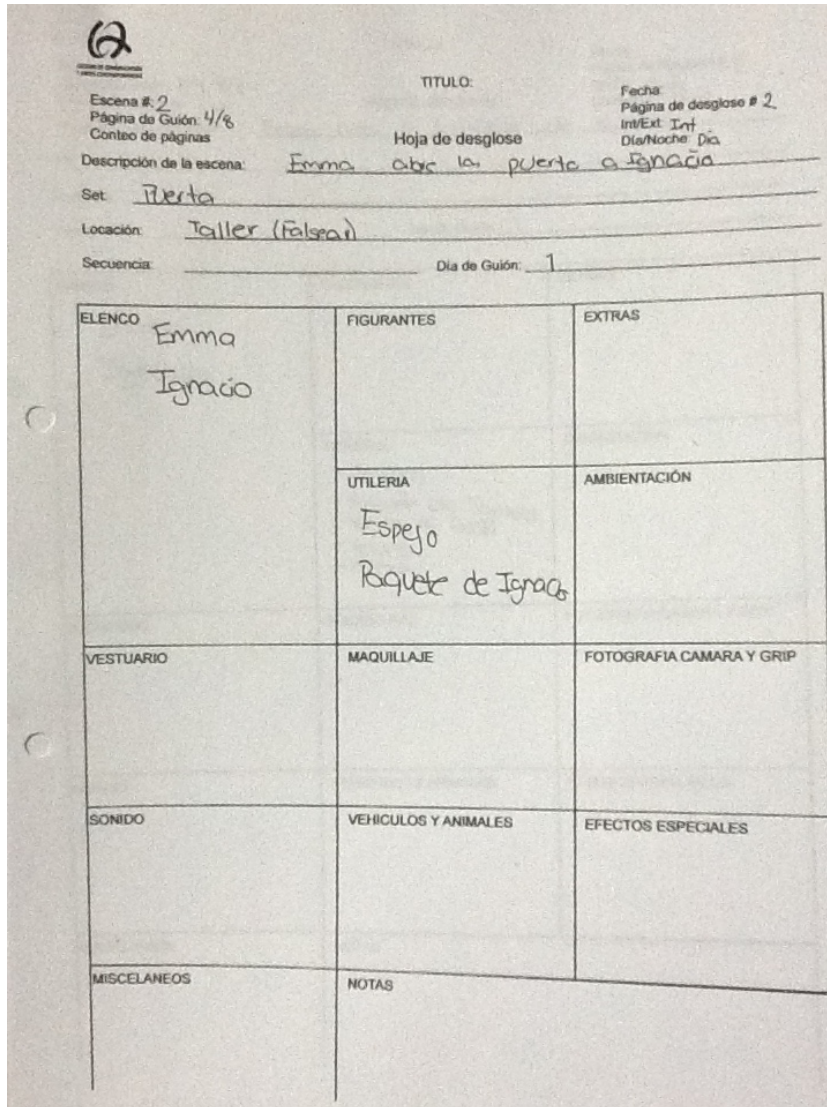 TITULO:
Escena #: 2
Página de Guión: 4/8
Conteo de páginas
Hoja de desglose
Fecha:
Página de desglose # 2
Int/Ext: Int
Día/Noche: Día
Descripción de la escena: Emma abre la puerta a Ignacio
Set: Puerta
Locación: Taller (Falsear)
Secuencia: Dia de Guión: 1
ELENCO
Emma
Ignacio
FIGURANTES
EXTRAS
UTILERIA
Espejo
Paquete de Ignacio
AMBIENTACIÓN
VESTUARIO
MAQUILLAJE
FOTOGRAFIA CAMARA Y GRIP
SONIDO
VEHICULOS Y ANIMALES
EFECTOS ESPECIALES
MISCELANEOS
NOTAS